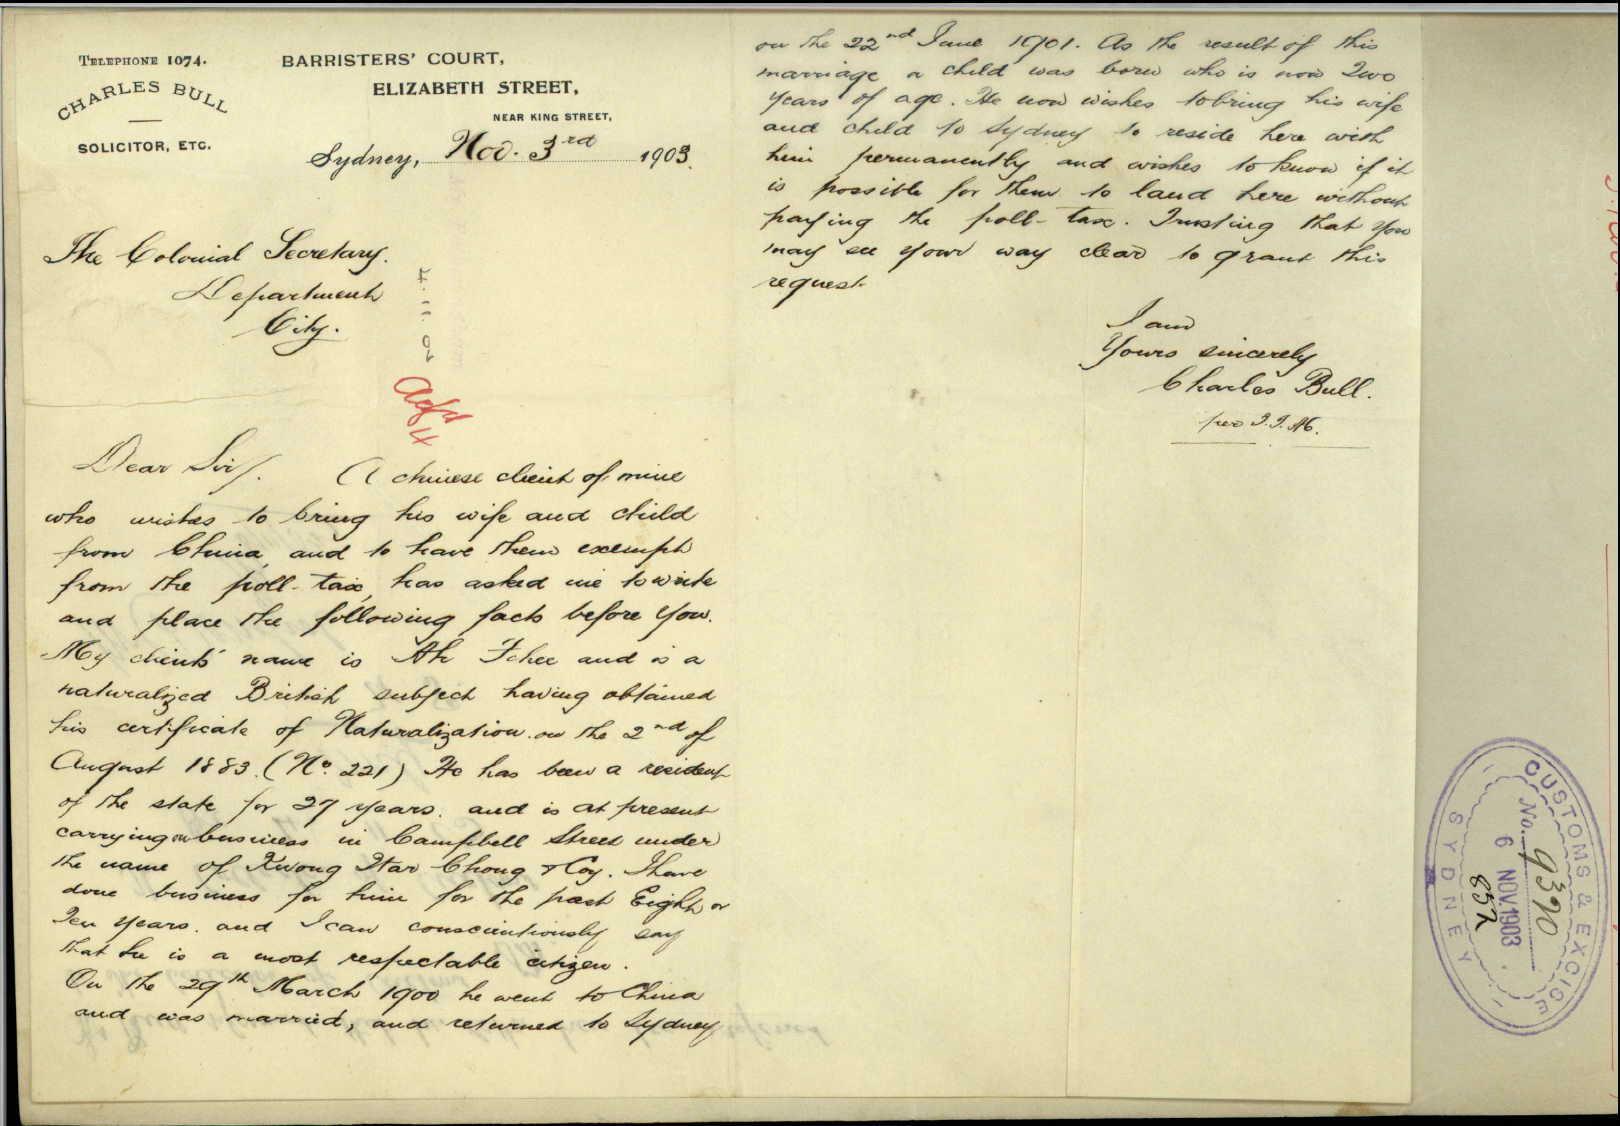 TELEPHONE 1074.
CHARLES BULL
SOLICITOR, ETC.
BARRISTERS' COURT,
ELIZABETH STREET,
NEAR KING STREET,
Sydney, Nov. 3rd 1903.
The Colonial Secretary.
Department
City.
Dear Sir/. A chinese client of mine
who wishes to bring his wife and child
from China, and to have them exempt
from the poll-tax, has asked me to write
and place the following facts before you.
My clients' name is Ah Tchee and is a
naturalized British subject having obtained
his certificate of Naturalization on the 2nd of
August 1883. (No. 221) He has been a resident
of the state for 27 years. and is at present
carrying on business in Campbell Street under
the name of Kwong Star Chong & Coy. I have
done business for him for the past Eight or
Ten years. and I can conscientiously say
that he is a most respectable citizen.
On the 29th March 1900 he went to China
and was married, and returned to Sydney
on the 22nd June 1901. As the result of this
marriage a child was born who is now Two
years of age. He now wishes to bring his wife
and child to Sydney to reside here with
him permanently and wishes to know if it
is possible for them to land here without
paying the poll-tax. Trusting that you
may see your way clear to grant this
request.
I am
Yours sincerely
Charles Bull.
per
CUSTOMS & EXCISE
No. 9390
6 NOV. 1903
857
SYDNEY